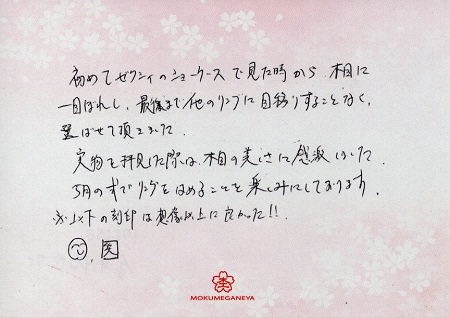 初めてゼクシィのショーケースで見た時から 木目に
一目ぼれし、最後まで他のリングに目移りすることなく、
選ばせて頂きました。
実物を拝見した際は、木目の美しさに感激しました。
5月の挙式でリングをはめることを楽しみにしております。
の刻印は想像以上に良かった!!
MOKUMEGANEYA